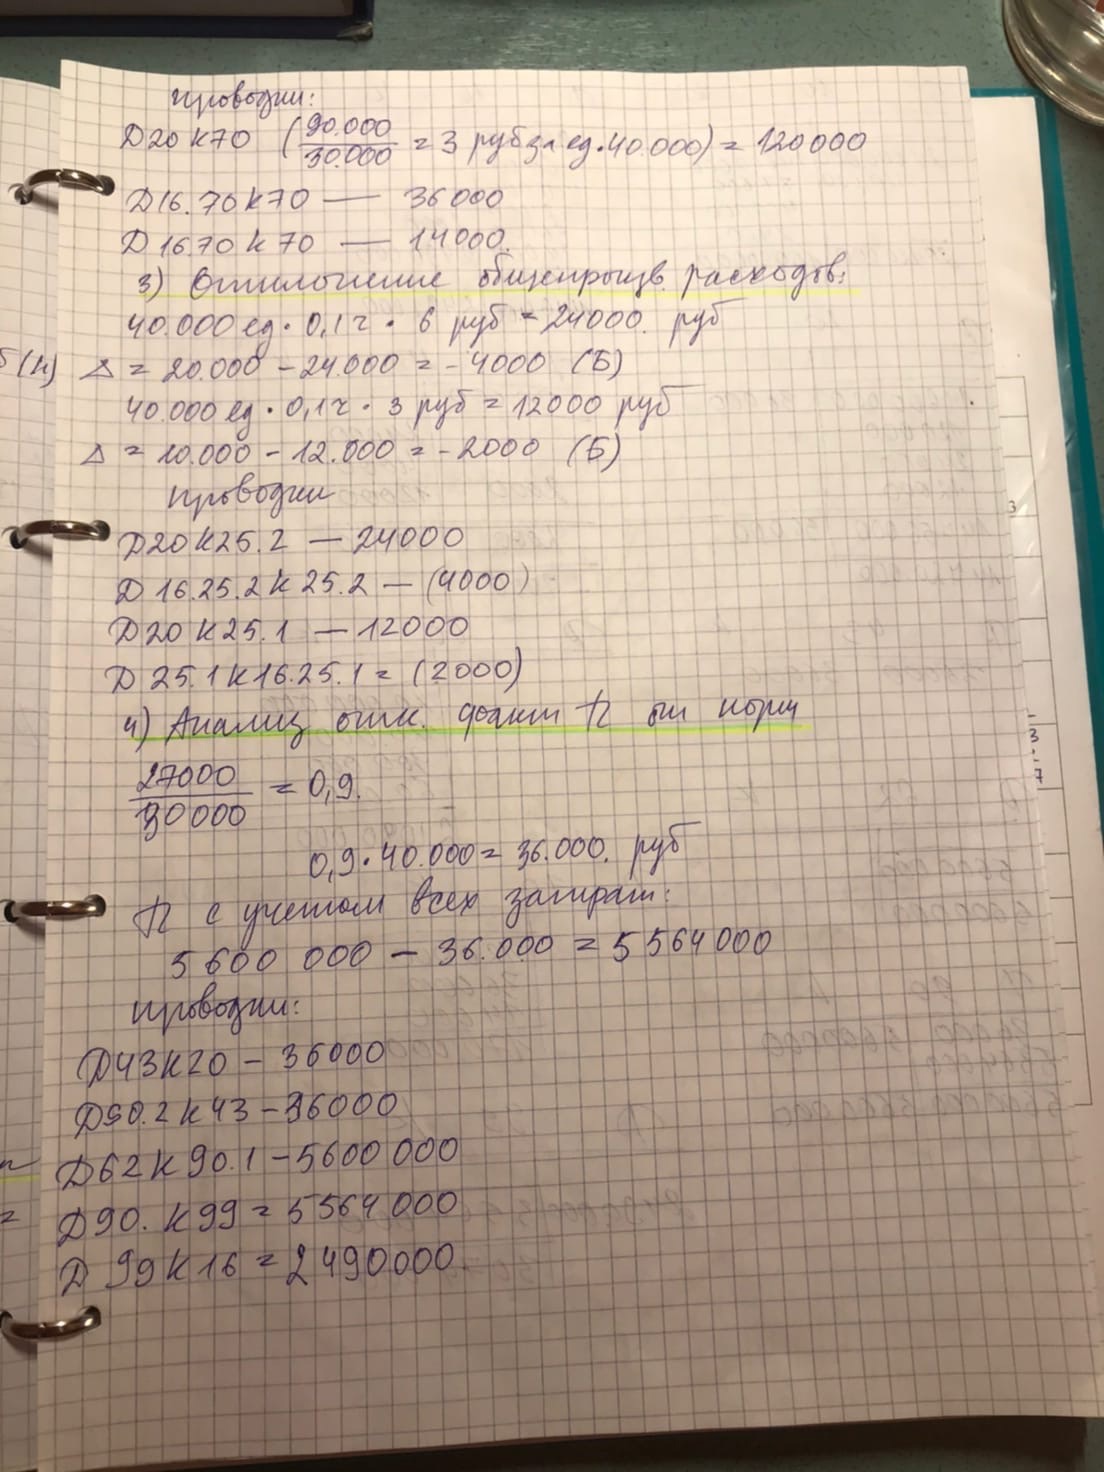 проводки:
Д20К70 (90.000/30.000 = 3 руб за ед · 40.000) = 120000
Д16.70К70 — 36000
Д16.70К70 — 14000.
3) Отклонение общепроизв. расходов:
40.000 ед · 0,1ч · 6 руб = 24000. руб
Δ = 20.000 - 24.000 = -4000 (Б)
40.000 ед · 0,1ч · 3 руб = 12000 руб
Δ = 10.000 - 12.000 = -2000 (Б)
проводки
Д20К25.2 — 24000
Д16.25.2К25.2 — (4000)
Д20К25.1 — 12000
Д25.1К16.25.1 = (2000)
4) Анализ откл. факт П от норм
27000/30000 = 0,9.
0,9 · 40.000 = 36.000. руб
П с учетом всех затрат:
5600 000 - 36.000 = 5564000
проводки:
Д43К20 - 36000
Д90.2К43 - 36000
Д62К90.1 - 5600000
Д90. К99 = 5564000
Д99К16 = 2490000.